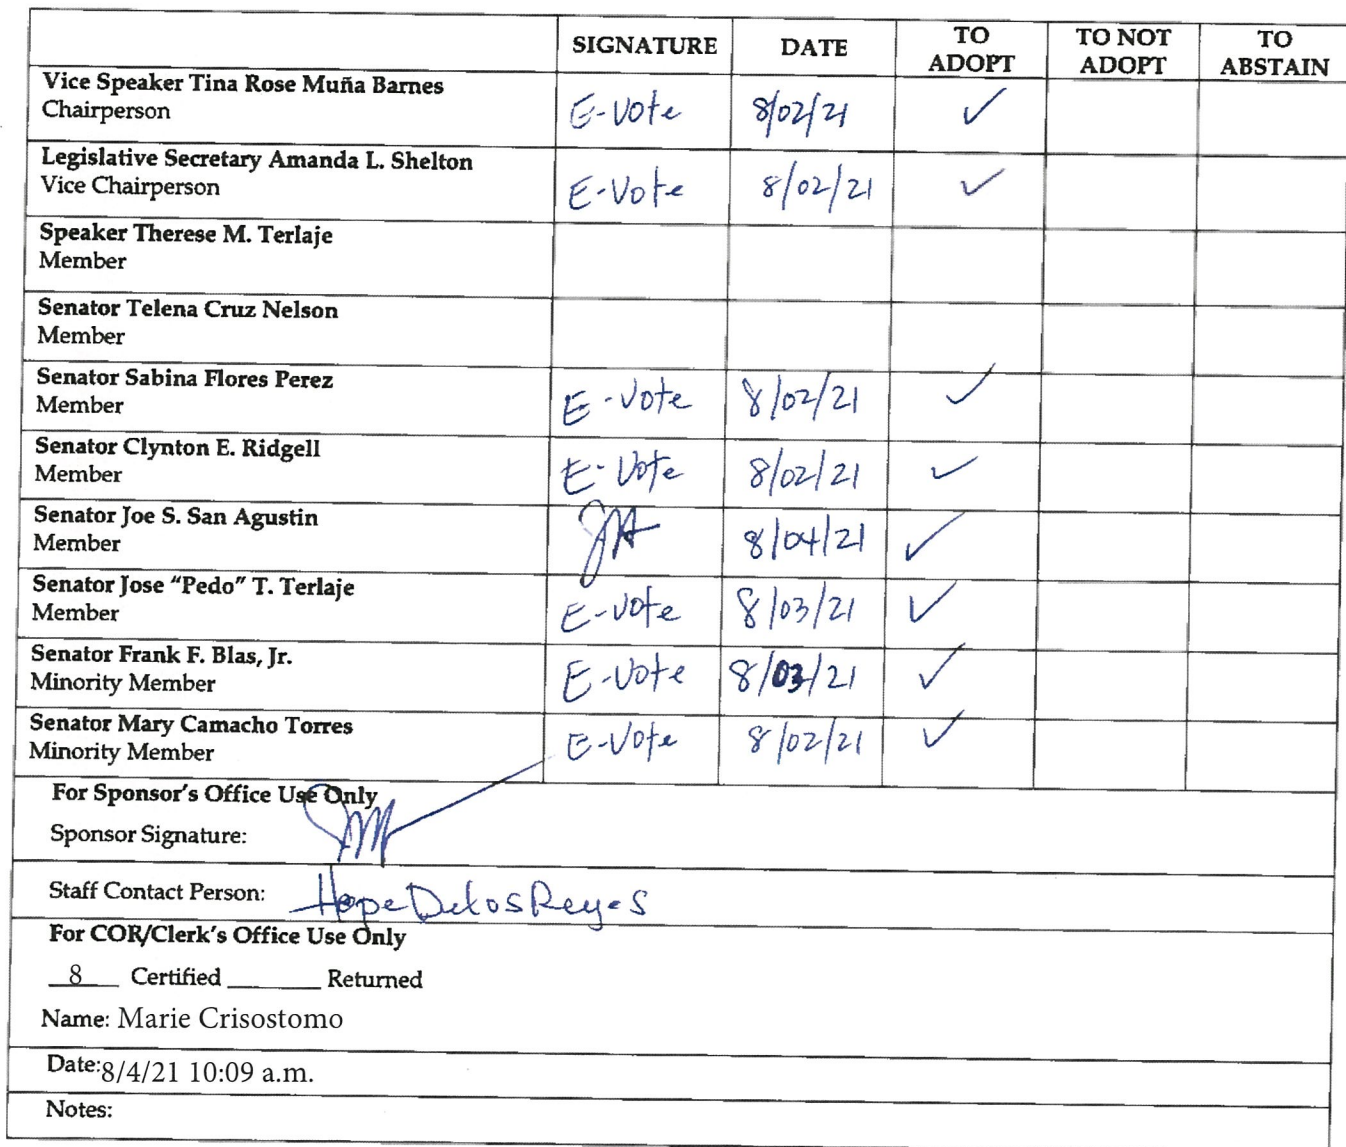 SIGNATURE DATE TO ADOPT TO NOT ADOPT TO ABSTAIN
Vice Speaker Tina Rose Muña Barnes
Chairperson E-Vote 8/02/21 ✓
Legislative Secretary Amanda L. Shelton
Vice Chairperson E-Vote 8/02/21 ✓
Speaker Therese M. Terlaje
Member
Senator Telena Cruz Nelson
Member
Senator Sabina Flores Perez
Member E-Vote 8/02/21 ✓
Senator Clynton E. Ridgell
Member E-Vote 8/02/21 ✓
Senator Joe S. San Agustin
Member 8/04/21 ✓
Senator Jose "Pedo" T. Terlaje
Member E-Vote 8/03/21 ✓
Senator Frank F. Blas, Jr.
Minority Member E-Vote 8/03/21 ✓
Senator Mary Camacho Torres
Minority Member E-Vote 8/02/21 ✓
For Sponsor's Office Use Only
Sponsor Signature:
Staff Contact Person: Hope DelosReyes
For COR/Clerk's Office Use Only
8 Certified ______ Returned
Name: Marie Crisostomo
Date: 8/4/21 10:09 a.m.
Notes: